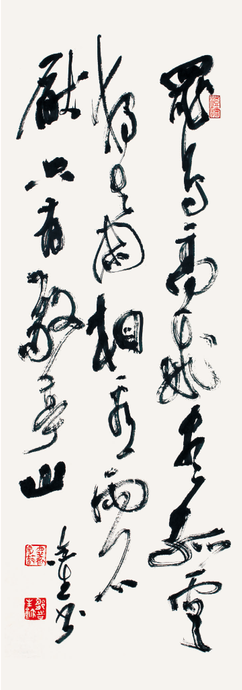 眾鳥高飛盡孤雲
獨去閑相看兩不
厭只有敬亭山